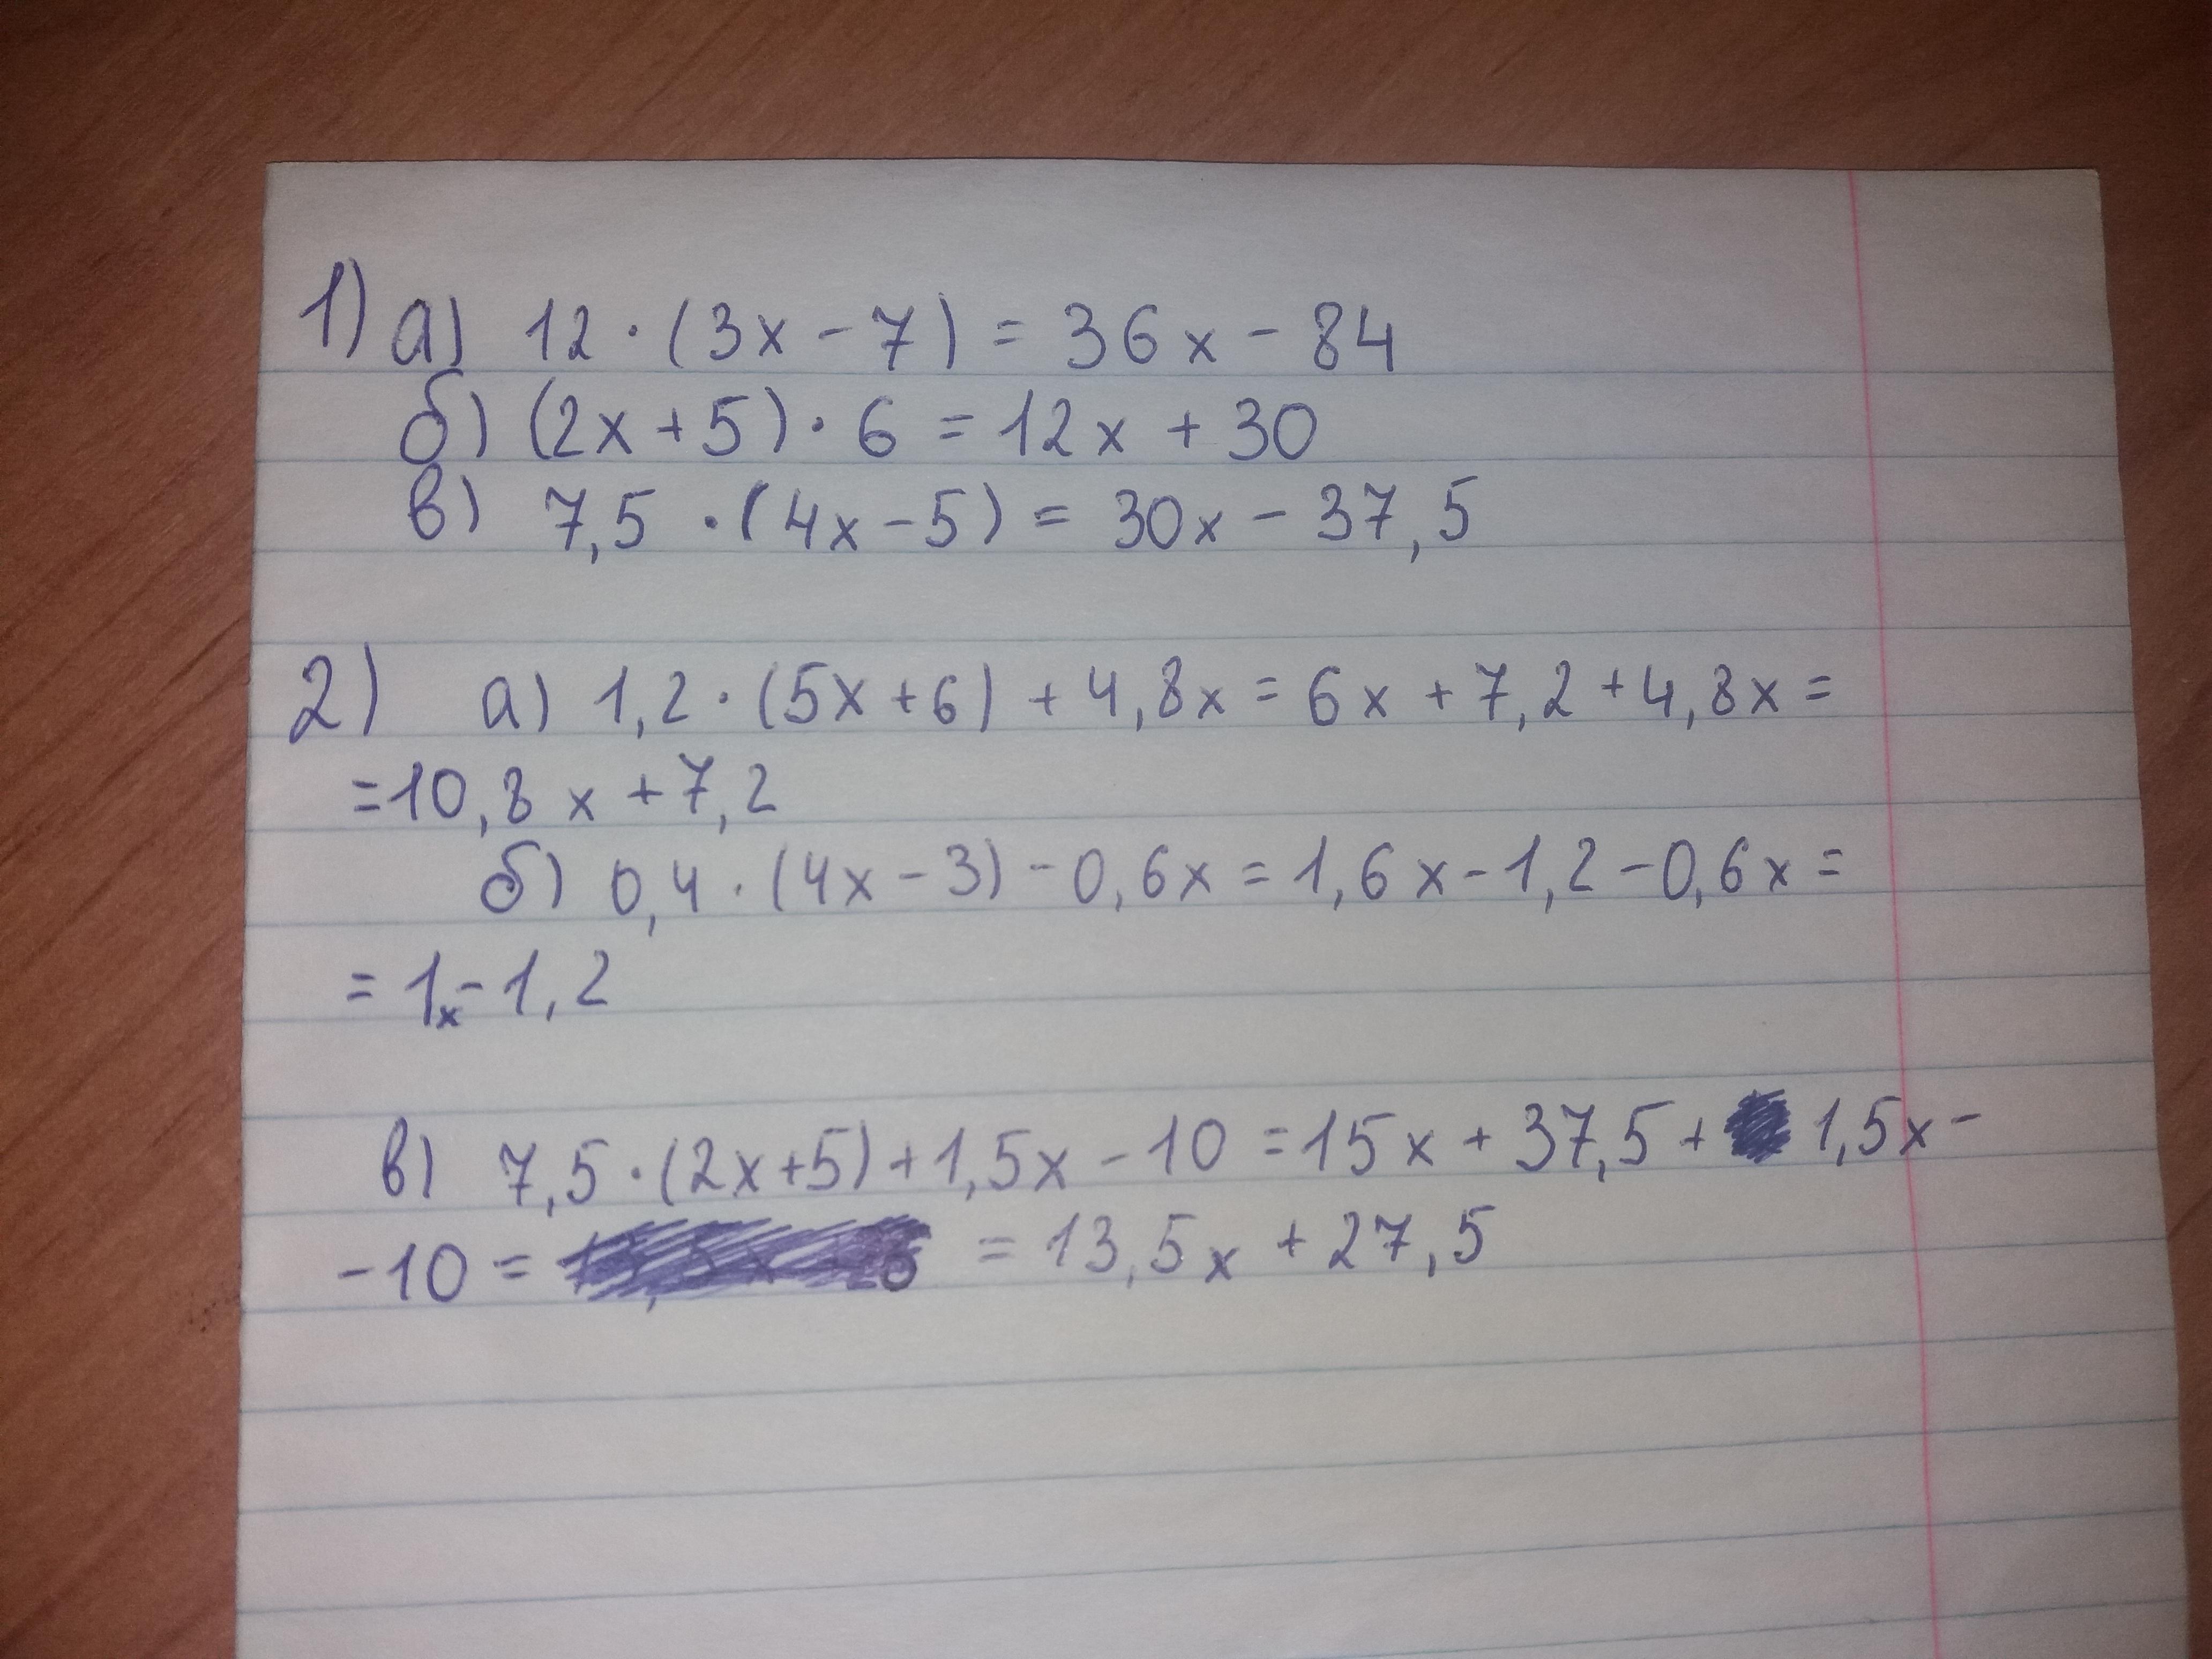 1) а) 12 · (3x - 7) = 36x - 84
б) (2x + 5) · 6 = 12x + 30
в) 7,5 · (4x - 5) = 30x - 37,5
2) а) 1,2 · (5x + 6) + 4,8x = 6x + 7,2 + 4,8x =
= 10,8x + 7,2
б) 0,4 · (4x - 3) - 0,6x = 1,6x - 1,2 - 0,6x =
= 1x - 1,2
в) 7,5 · (2x + 5) + 1,5x - 10 = 15x + 37,5 + 1,5x -
- 10 = = 13,5x + 27,5